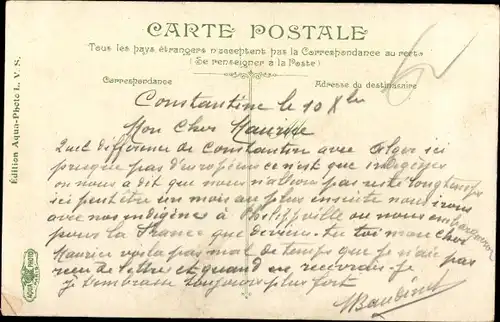 CARTE POSTALE
Tous les pays étrangers n'acceptent pas la Correspondance au recto
(Se renseigner à la Poste)
Correspondance
Adresse du destinataire
Édition Aqua-Photo L. V. S.
AQUA PHOTO
Constantine le 10 Xbre
Mon Cher Maurice
Quel différence de Constantin avec Alger ici
presque pas d'européens ce n'est que indigènes
on nous a dit que nous n'allions pas resté longtemps
ici peut être un mois au plus ensuite nous irons
avec nos indigène à Philippville ou nous embarqueron
pour la France que devien tu toi mon cher
Maurice voila pas mal de temps que je n'ai pas
reçu de lettre et quand en recevrais-je
je t'embrasse toujours plus fort